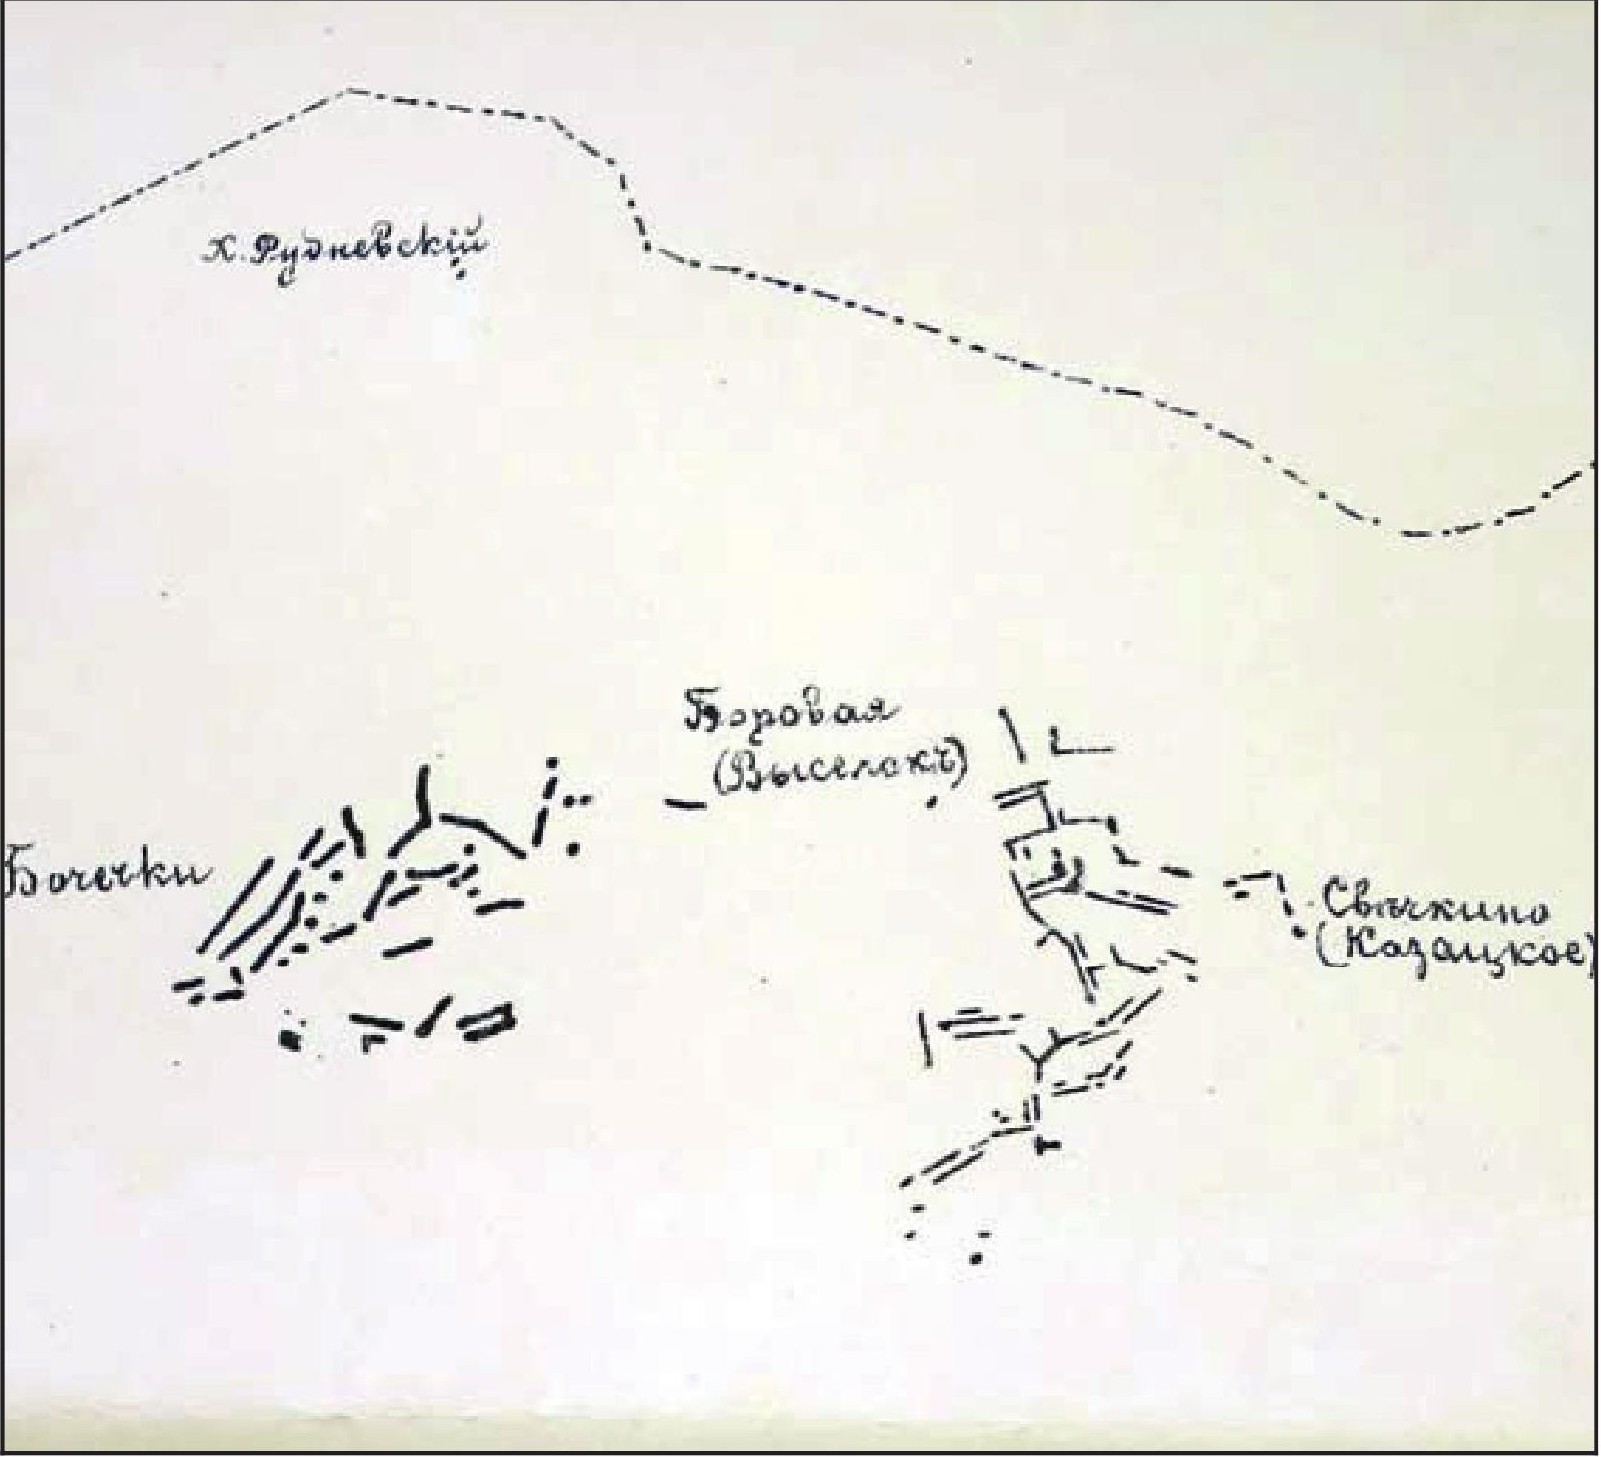 Х. Рудневскій
Боровая
(Выселокъ)
Бочечки
Свѣчкино
(Казацкое)